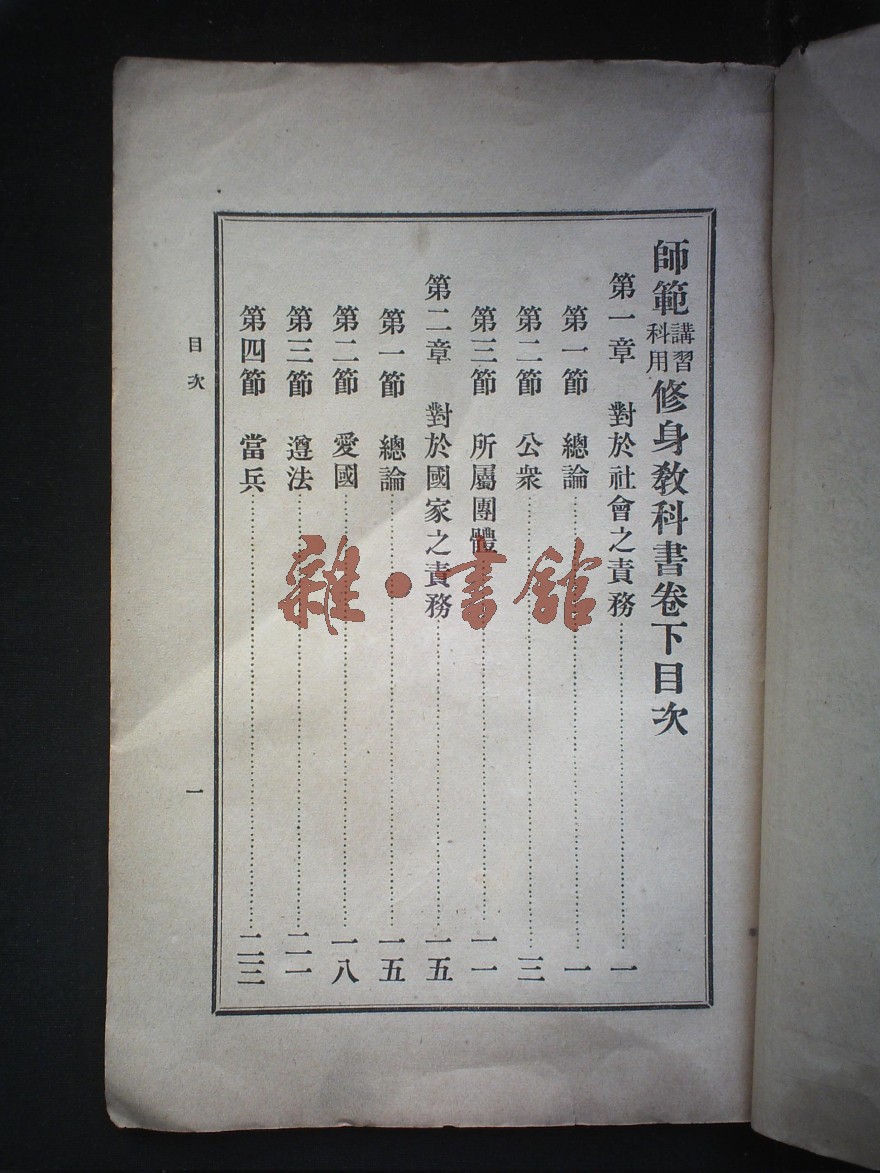 師範講習科用修身教科書卷下目次
第一章 對於社會之責務…………一
第一節 總論…………一
第二節 公衆…………三
第三節 所屬團體…………一一
第二章 對於國家之責務…………一五
第一節 總論…………一五
第二節 愛國…………一八
第三節 遵法…………二一
第四節 當兵…………二三
目次 一
雜·書館